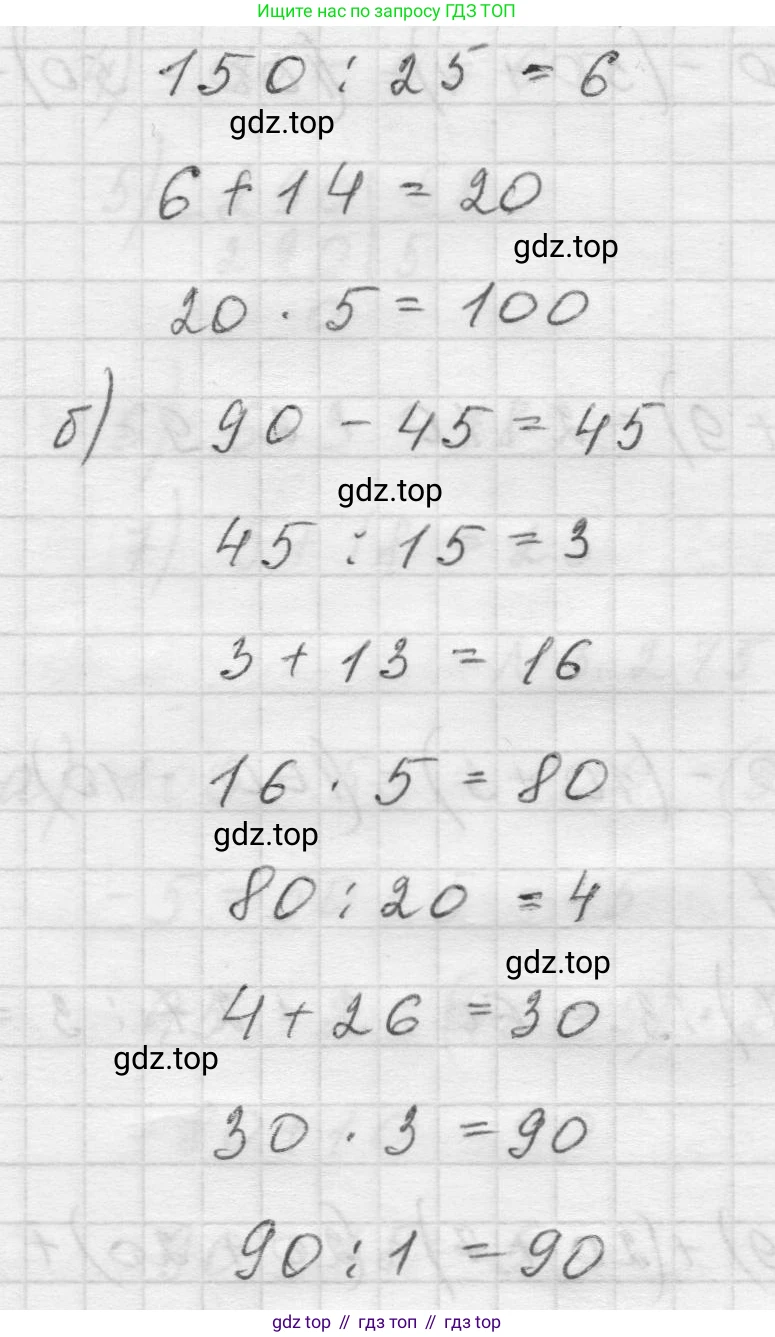 Ищите нас по запросу ГДЗ ТОП
150 : 25 = 6
gdz.top
6 + 14 = 20
gdz.top
20 · 5 = 100
б) 90 - 45 = 45
gdz.top
45 : 15 = 3
3 + 13 = 16
16 · 5 = 80
gdz.top
80 : 20 = 4
gdz.top
4 + 26 = 30
gdz.top
30 · 3 = 90
90 : 1 = 90
gdz.top // гдз топ // гдз.top